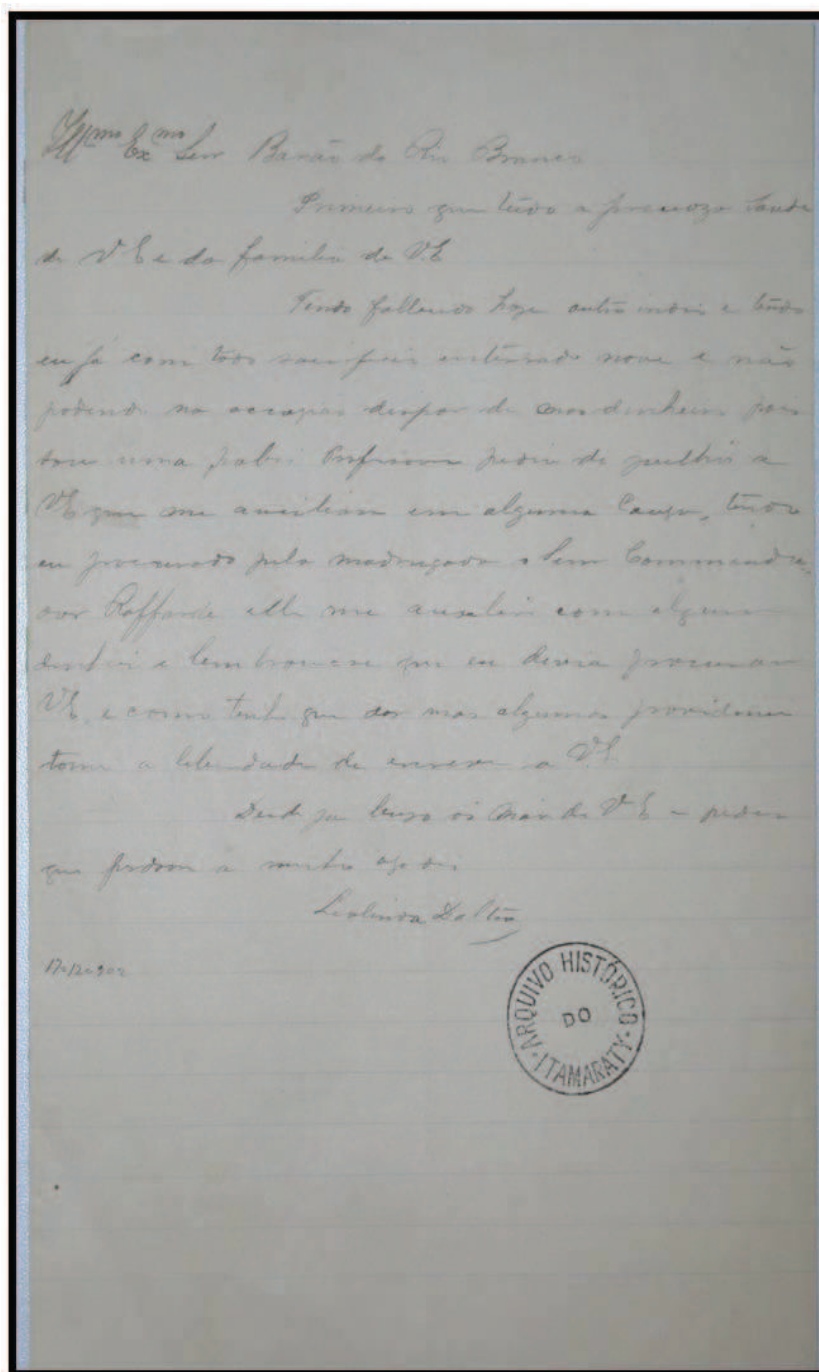 Illmo Exmo Senr Barão do Rio Branco
Primeiro que tudo a preciosa saude
de V E e da familia de V.E
Tendo fallecido hoje outro indio e tendo
eu já com todo sacrificio enterrado nove e não
podendo na occasião dispor de mas dinheiro pois
sou uma pobre Professora pedir de a
V E que me auxiliar em alguma Couza, tendo
eu procurado pela madrugada o Senr Commenda-
dor elle me auxiliou com algum
e lembrou-me que eu devia procurar
V E, e como tenho que dar mas algumas providencias
tomo a liberdade de a V.E
Desde já beijo as mãos de V E e pedir
que perdoar a minha
Leolinda Daltro
ARQUIVO HISTÓRICO
DO
ITAMARATY